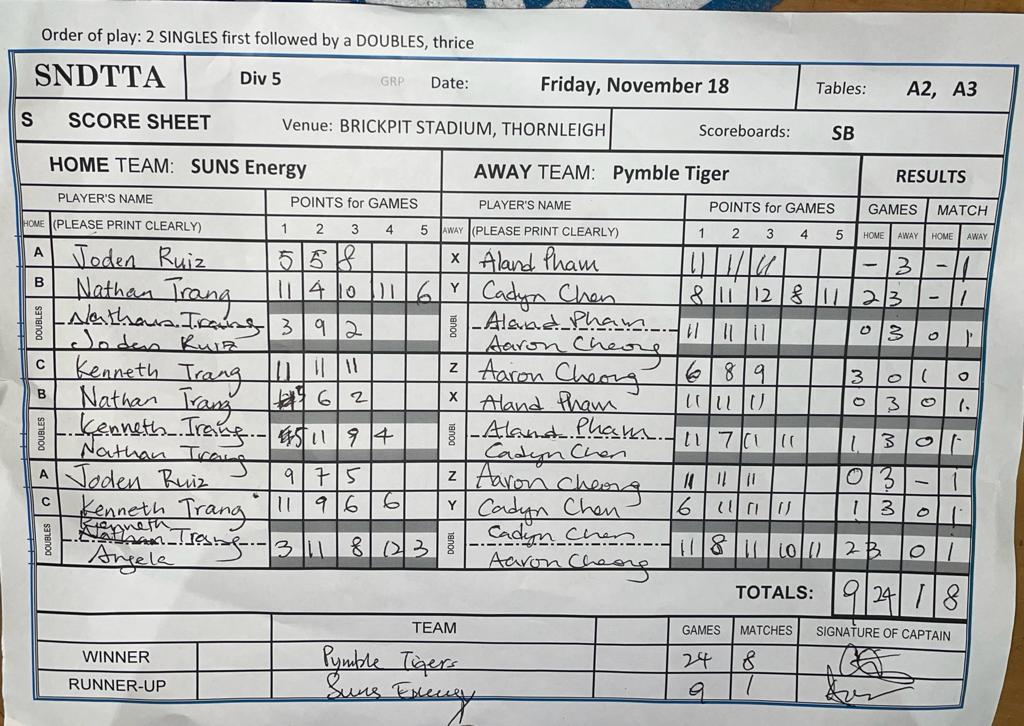 Order of play: 2 SINGLES first followed by a DOUBLES, thrice
SNDTTA Div 5 GRP Date: Friday, November 18 Tables: A2, A3
S SCORE SHEET Venue: BRICKPIT STADIUM, THORNLEIGH Scoreboards: SB
HOME TEAM: SUNS Energy AWAY TEAM: Pymble Tiger RESULTS
PLAYER'S NAME POINTS for GAMES PLAYER'S NAME POINTS for GAMES GAMES MATCH
HOME (PLEASE PRINT CLEARLY) 1 2 3 4 5 AWAY (PLEASE PRINT CLEARLY) 1 2 3 4 5 HOME AWAY HOME AWAY
A Joden Ruiz 5 5 8 X Aland Pham 11 11 11 - 3 - 1
B Nathan Trang 11 4 10 11 6 Y Cadyn Chen 8 11 12 8 11 2 3 - 1
DOUBLES Nathan Trang 3 9 2 DOUBL Aland Pham 11 11 11 0 3 0 1
Joden Ruiz Aaron Cheong
C Kenneth Trang 11 11 11 Z Aaron Cheong 6 8 9 3 0 1 0
B Nathan Trang 6 2 X Aland Pham 11 11 11 0 3 0 1.
DOUBLES Kenneth Trang 5 11 9 4 DOUBL Aland Pham 11 7 11 11 1 3 0 1
Nathan Trang Cadyn Chen
A Joden Ruiz 9 7 5 Z Aaron Cheong 11 11 11 0 3 - 1
C Kenneth Trang 11 9 6 6 Y Cadyn Chen 6 11 11 11 1 3 0 1
Kenneth
DOUBLES Nathan Trang 3 11 8 12 3 DOUBL Cadyn Chen 11 8 11 10 11 2 3 0 1
Angela Aaron Cheong
TOTALS: 9 24 1 8
TEAM GAMES MATCHES SIGNATURE OF CAPTAIN
WINNER Pymble Tigers 24 8
RUNNER-UP Suns Energy 9 1